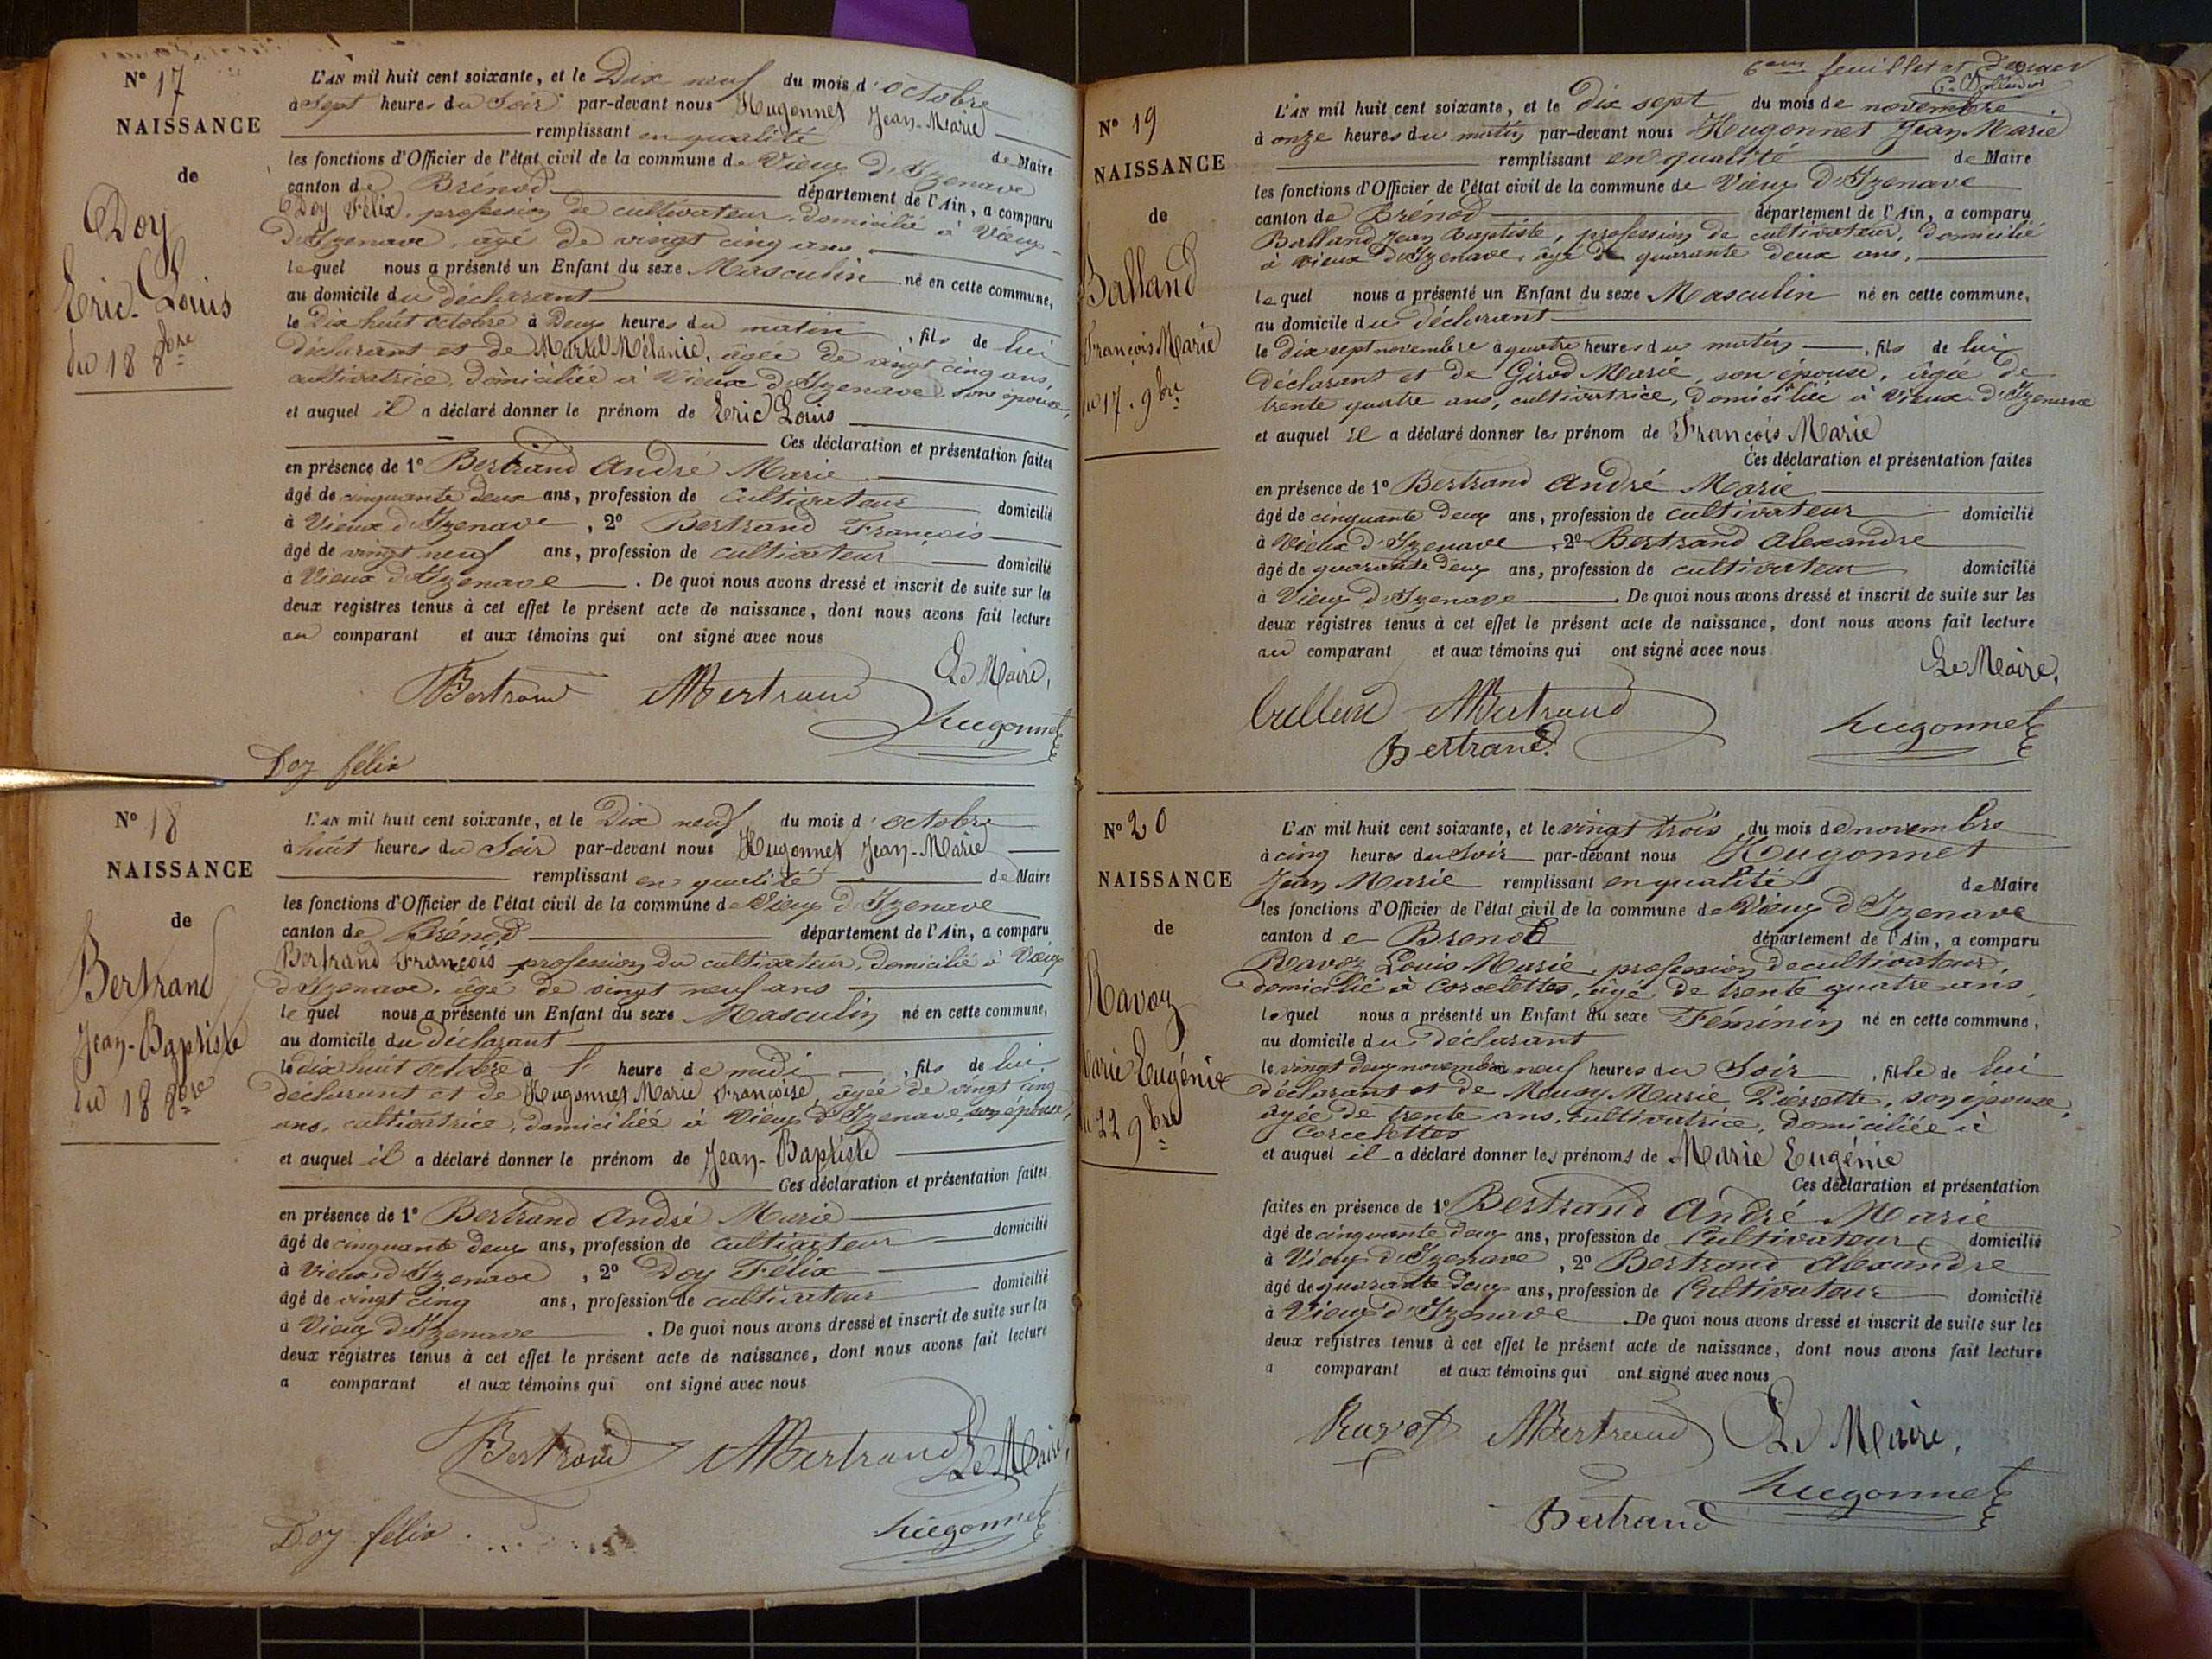 N° 17
NAISSANCE
de
Doy
Eric-Louis
du 18 8bre
L'AN mil huit cent soixante, et le Dix neuf du mois d'octobre
à sept heures du Soir par-devant nous Hugonnet Jean-Marie
remplissant en qualité de Maire
les fonctions d'Officier de l'état civil de la commune de Vieux d'Izenave
canton de Brénod département de l'Ain, a comparu
Doy Félix, profession de cultivateur, domicilié à Vieux
D'Izenave, âgé de vingt cinq ans
lequel nous a présenté un Enfant du sexe Masculin né en cette commune,
au domicile du déclarant
le Dix huit octobre à Deux heures du matin, fils de lui
déclarant et de Martel Mélanie, âgée de vingt cinq ans,
cultivatrice, domiciliée à Vieux d'Izenave, son épouse,
et auquel il a déclaré donner le prénom de Eric Louis
Ces déclaration et présentation faites
en présence de 1° Bertrand André Marie
âgé de cinquante deux ans, profession de cultivateur domicilié
à Vieux d'Izenave, 2° Bertrand François
âgé de vingt neuf ans, profession de cultivateur domicilié
à Vieux d'Izenave. De quoi nous avons dressé et inscrit de suite sur les
deux registres tenus à cet effet le présent acte de naissance, dont nous avons fait lecture
au comparant et aux témoins qui ont signé avec nous
Le Maire,
Bertrand ABertrand
hugonnet
Doy félix
N° 18
NAISSANCE
de
Bertrand
Jean-Baptiste
du 18 8bre
L'AN mil huit cent soixante, et le Dix neuf du mois d'octobre
à huit heures du Soir par-devant nous Hugonnet Jean-Marie
remplissant en qualité de Maire
les fonctions d'Officier de l'état civil de la commune de Vieux d'Izenave
canton de Brénod département de l'Ain, a comparu
Bertrand François profession du cultivateur, domicilié à Vieux
d'Izenave, âgé de vingt neuf ans
lequel nous a présenté un Enfant du sexe Masculin né en cette commune,
au domicile du déclarant
le dix huit octobre à 1 heure de midi, fils de lui
déclarant et de Hugonnet Marie Françoise, âgée de vingt cinq
ans, cultivatrice, domiciliée à Vieux D'Izenave, son épouse,
et auquel il a déclaré donner le prénom de Jean-Baptiste
Ces déclaration et présentation faites
en présence de 1° Bertrand André Marie
âgé de cinquante deux ans, profession de cultivateur domicilié
à Vieux d'Izenave, 2° Doy Félix
âgé de vingt cinq ans, profession de cultivateur domicilié
à Vieux d'Izenave. De quoi nous avons dressé et inscrit de suite sur les
deux registres tenus à cet effet le présent acte de naissance, dont nous avons fait lecture
a comparant et aux témoins qui ont signé avec nous
Bertrand ABertrand Le Maire,
Doy félix hugonnet
6eme feuillet et dernier
N° 19
NAISSANCE
de
Balland
François Marie
du 17 9bre
L'AN mil huit cent soixante, et le dix sept du mois de novembre
à onze heures du matin par-devant nous Hugonnet Jean Marie
remplissant en qualité de Maire
les fonctions d'Officier de l'état civil de la commune de Vieux D'Izenave
canton de Brénod département de l'Ain, a comparu
Balland Jean Baptiste, profession de cultivateur, domicilié
à Vieux D'Izenave, âgé de quarante deux ans,
lequel nous a présenté un Enfant du sexe Masculin né en cette commune,
au domicile du déclarant
le dix sept novembre à quatre heures du matin, fils de lui
déclarant et de Girod Marie, son épouse, âgée de
trente quatre ans, cultivatrice, domiciliée à Vieux d'Izenave
et auquel il a déclaré donner les prénom de François Marie
Ces déclaration et présentation faites
en présence de 1° Bertrand André Marie
âgé de cinquante deux ans, profession de cultivateur domicilié
à Vieux d'Izenave, 2° Bertrand Alexandre
âgé de quarante deux ans, profession de cultivateur domicilié
à Vieux D'Izenave. De quoi nous avons dressé et inscrit de suite sur les
deux registres tenus à cet effet le présent acte de naissance, dont nous avons fait lecture
au comparant et aux témoins qui ont signé avec nous
Le Maire,
ABertrand hugonnet
Bertrand
N° 20
NAISSANCE
de
Ravoz
Marie Eugénie
du 22 9bre
L'AN mil huit cent soixante, et le vingt trois du mois de novembre
à cinq heures du Soir par-devant nous Hugonnet
Jean Marie remplissant en qualité de Maire
les fonctions d'Officier de l'état civil de la commune de Vieux D'Izenave
canton de Brenod département de l'Ain, a comparu
Ravoz Louis Marie, profession de cultivateur,
domicilié à Corcelettes, âgé de trente quatre ans,
lequel nous a présenté un Enfant du sexe Féminin né en cette commune,
au domicile du déclarant
le vingt deux novembre neuf heures du Soir, fille de lui
déclarant et de Mousy Marie Pierrette, son épouse,
âgée de trente ans, cultivatrice, domiciliée à
Corcelettes
et auquel il a déclaré donner les prénoms de Marie Eugénie
Ces déclaration et présentation
faites en présence de 1° Bertrand André Marie
âgé de cinquante deux ans, profession de Cultivateur domicilié
à Vieux d'Izenave, 2° Bertrand Alexandre
âgé de quarante deux ans, profession de Cultivateur domicilié
à Vieux d'Izenave. De quoi nous avons dressé et inscrit de suite sur les
deux registres tenus à cet effet le présent acte de naissance, dont nous avons fait lecture
a comparant et aux témoins qui ont signé avec nous
Ravot ABertrand Le Maire,
hugonnet
Bertrand